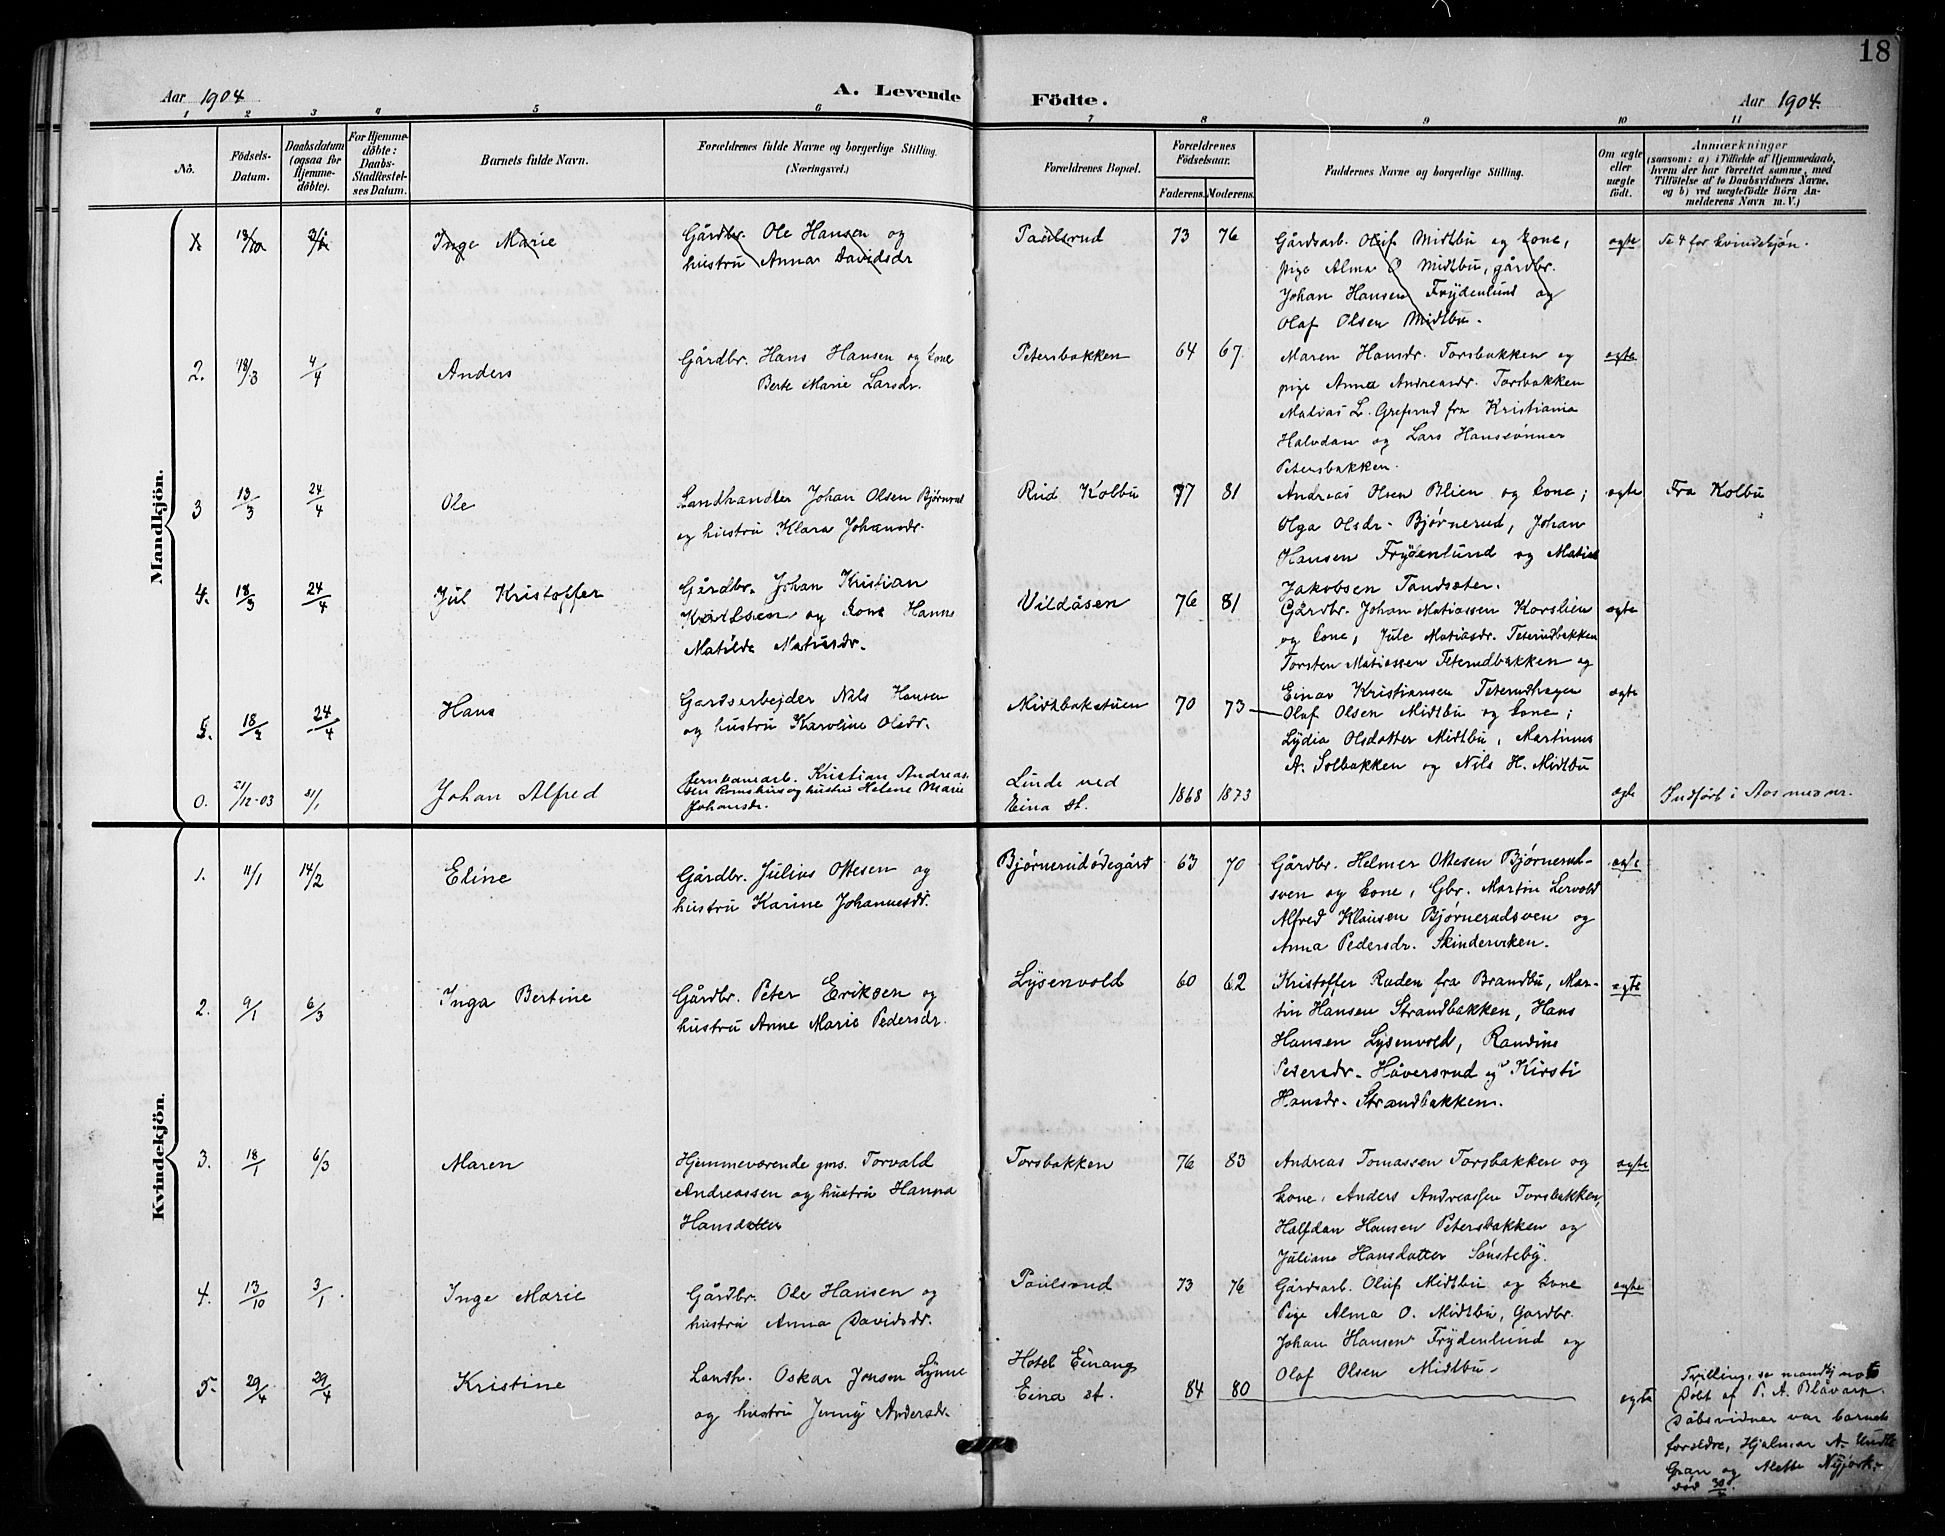 18
Aar 1904 A. Levende Födte. Aar 1904.
1 2 3 4 5 6 7 8 9 10 11
No.
Fødsels-Datum.
Daabsdatum (ogsaa for Hjemmedøbte).
For Hjemmedøbte: Daabs-Stadfæstelses Datum.
Barnets fulde Navn.
Forældrenes fulde Navne og borgerlige Stilling.
(Næringsvei.)
Forældrenes Bopæl.
Forældrenes Fødselsaar.
Faderens. Moderens.
Faddernes Navne og borgerlige Stilling.
Om ægte eller uægte født.
Anmærkninger
(saasom: a) i Tilfælde af Hjemmedaab, hvem der har forrettet samme, med Tilføielse af to Daabsvidners Navne, og b) ved uægtefødte Børn Anmelderens Navn m. V.)
Mandkjön.
1. 13/10 3/1 Inge Marie Gårdbr. Ole Hansen og Paulsrud 73 76 Gårdsarb. Oluf Midtbu og kone, ægte Se 4 for kvindekjøn.
hustru Anna Davidsdr pige Alma O Midtbu, gårdbr.
Johan Hansen Frydenlund og
Olaf Olsen Midtbu.
2. 18/3 4/4 Anders Gårdbr. Hans Hansen og kone Petersbakken 64 67. Maren Hansdr. Torsbakken og ægte
Berte Marie Larsdr. pige Anna Andreasdr. Torsbakken
Matias L. Grefsrud fra Kristiania
Halvdan og Lars Hanssønner
Petersbakken.
3 13/3 24/4 Ole Landhandler Johan Olsen Bjørnerud Rud Kolbu 77 81 Andreas Olsen Blien og kone; ægte Fra Kolbu
og hustru Klara Johansdr. Olga Olsdr. Bjørnerud, Johan
Hansen Frydenlund og Matias
Jakobsen Tandsæter.
4. 18/3 24/4 Jul Kristoffer Gårdbr. Johan Kristian Vildåsen 76 81 Gårdbr. Johan Matiassen Korslien ægte
Karlsen og kone Hanne og kone, Jule Matiasdr. Teterudbakken
Matilde Matiasdr. Torsten Matiassen Teterudbakken og
Einar Kristiansen Teterudhagen
5. 18/2 24/4 Hans Gardsarbejder Nils Hansen Midtbakstuen 70 73 Olaf Olsen Midtbu og kone; ægte
og hustru Karoline Olsdr. Lydia Olsdatter Midtbu, Martinus
A. Solbakken og Nils H. Midtbu
0. 21/12-03 31/1 Johan Alfred Jernbanearb. Kristian Andreas- Linde ved 1868 1873 ægte Indført i Aasmesnr.
sen Romshus og hustru Helene Marie Eina st.
Johansdr.
Kvindekjön.
1. 11/1 14/2 Eline Gårdbr. Julius Ottesen og Bjørnerudødegård 63 70 Gårdbr. Helmer Ottesen Bjørnerud- ægte
hustru Karine Johannesdr. sven og kone, Gbr. Martin Lervold
Alfred Klausen Bjørnerudsven og
Anna Pedersdr. Skinderviken.
2. 9/1 6/3 Inga Bertine Gårdbr. Peter Eriksen og Lysenvold 60 62 Kristoffer Ruden fra Brandbu, Mar- ægte
hustru Anne Marie Pedersdr. tin Hansen Strandbakken, Hans
Hansen Lysenvold, Randine
Pedersdr. Håversrud og Kirsti
Hansdr. Strandbakken.
3. 18/1 6/3 Maren Hjemmeværende gms. Torvald Torsbakken 76 83 Andreas Tomassen Torsbakken og ægte
Andreassen og hustru Hanna kone, Anders Andreassen Torsbakken,
Hansdatter Halfdan Hansen Petersbakken og
Juliane Hansdatter Sønsteby.
4. 13/10 3/1. Inge Marie Gårdbr. Ole Hansen og Paulsrud 73 76 Gårdsarb. Oluf Midtbu og kone ægte
hustru Anna Davidsdr. Pige Alma O. Midtbu, Gardbr.
Johan Hansen Frydenlund og
Olaf Olsen Midtbu.
5. 29/4 29/4 Kristine Landh. Oskar Jensen Lynne Hotel Einang 84 80 ægte
og hustru Jenny Andersdr. Eina st.
Tvilling, se mandkj no 6
Døbt af P. A. Blåvarp.
Dåbsvidner var barnets
forældre, Hjalmar A.
Gran og Alette Nyjork.
død 30/4.